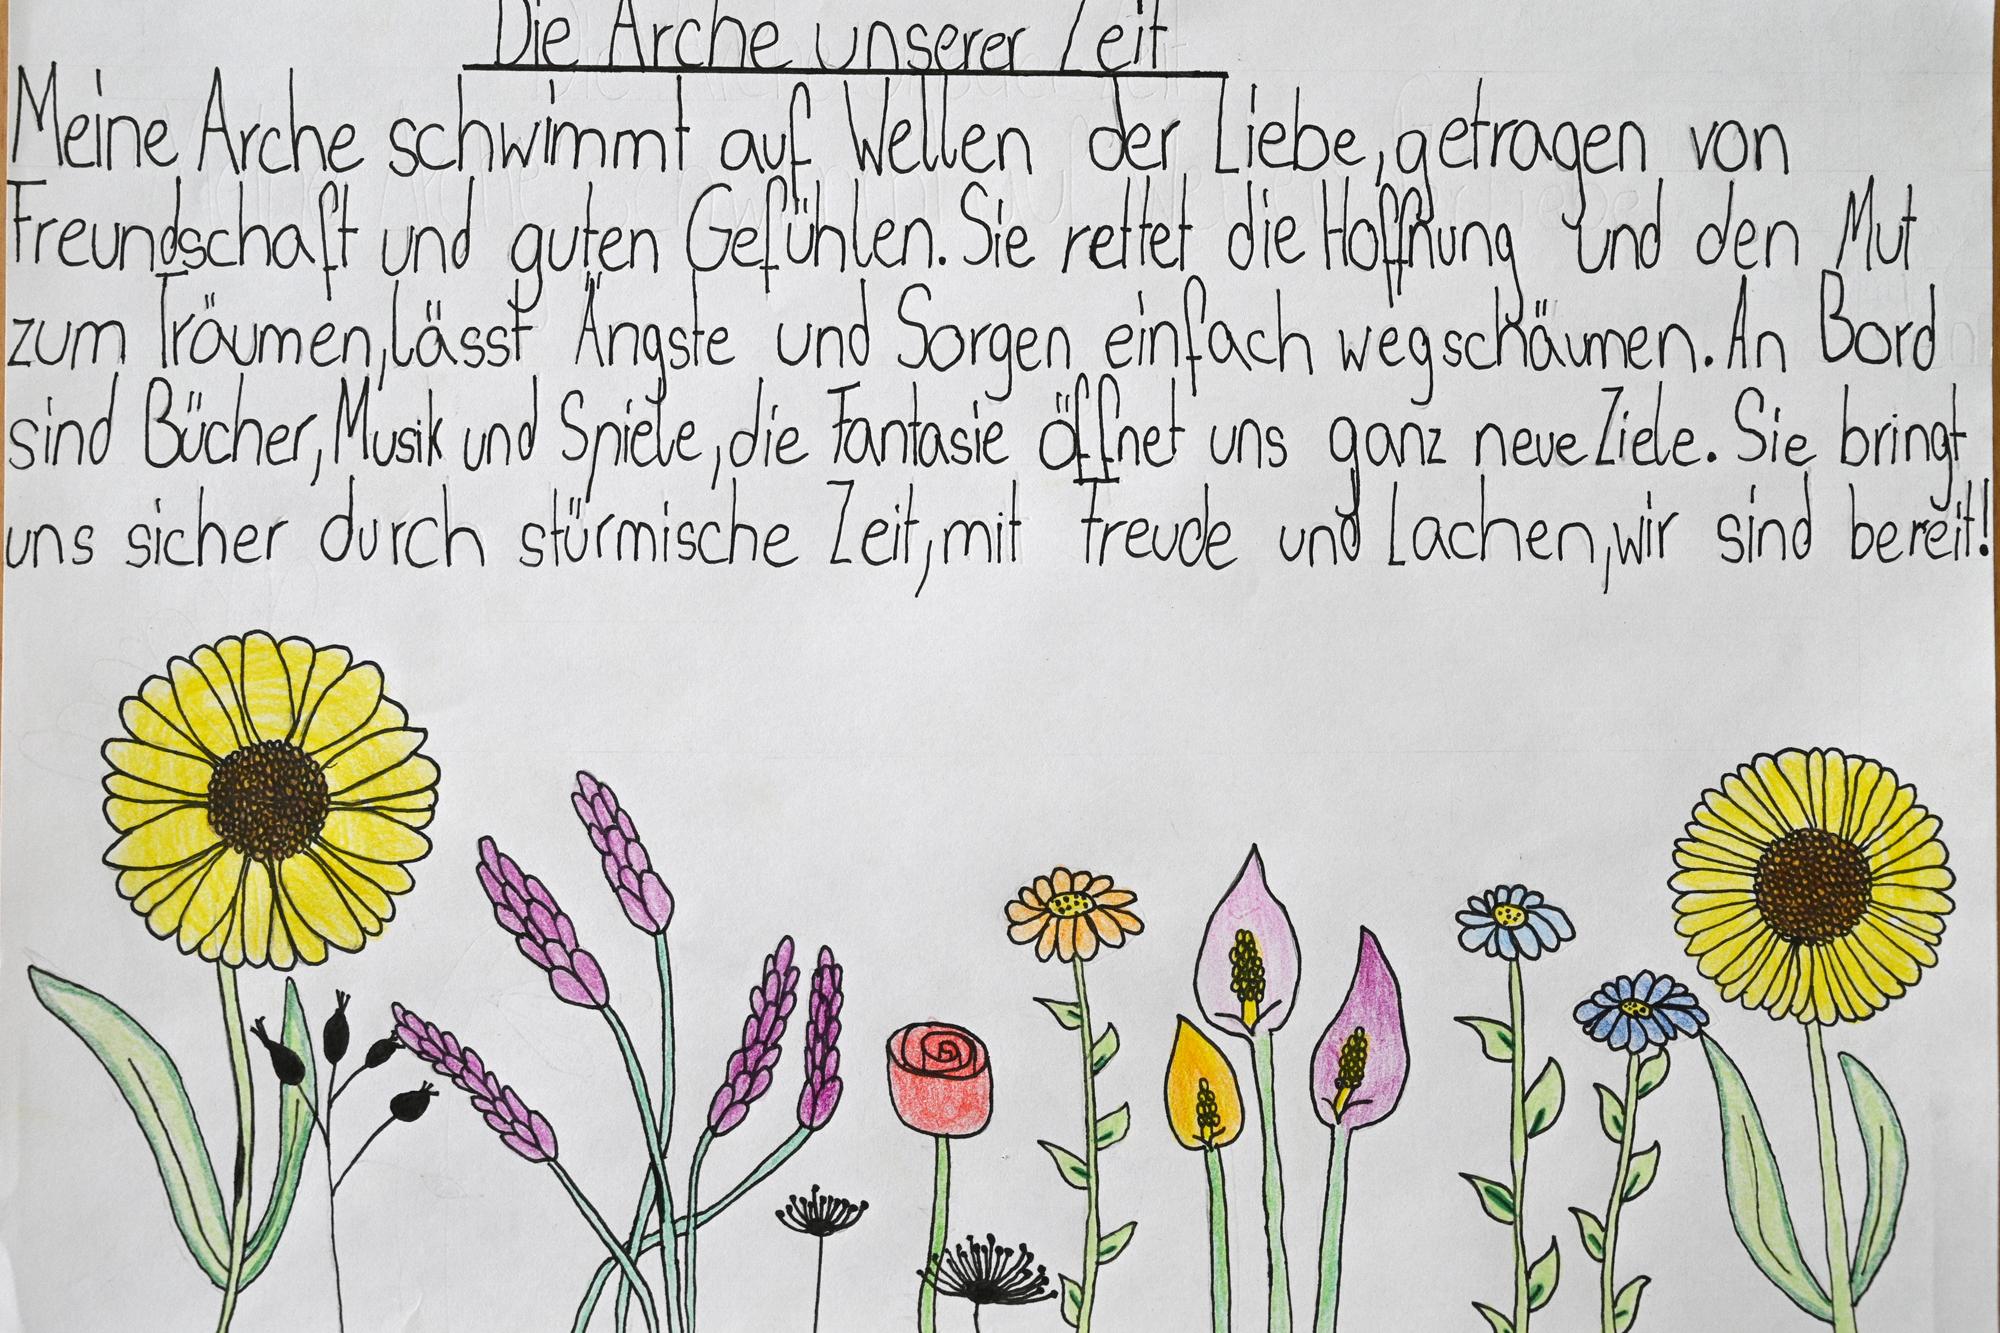 Die Arche unserer Zeit
Meine Arche schwimmt auf Wellen der Liebe, getragen von
Freundschaft und guten Gefühlen. Sie rettet die Hoffnung und den Mut
zum Träumen, lässt Ängste und Sorgen einfach wegschäumen. An Bord
sind Bücher, Musik und Spiele, die Fantasie öffnet uns ganz neue Ziele. Sie bringt
uns sicher durch stürmische Zeit, mit Freude und Lachen, wir sind bereit!